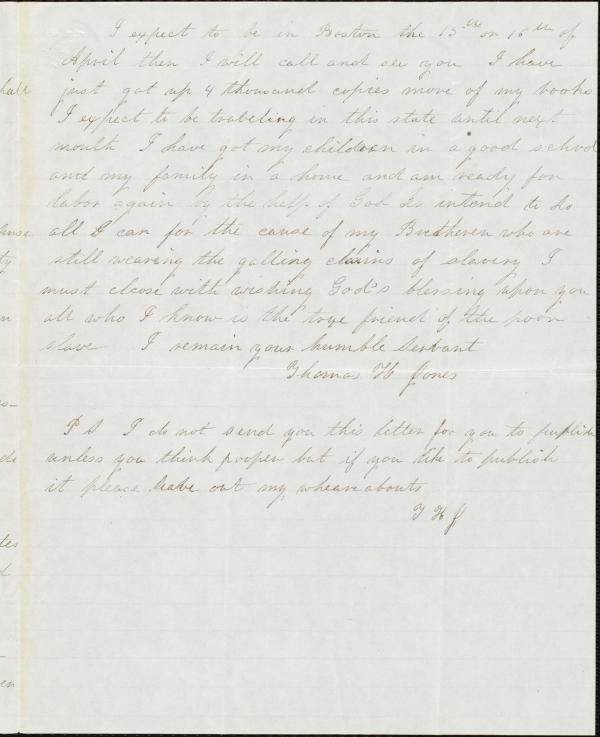 I expect to be in Boston the 15th or 16th of
April then I will call and see you I have
just got up 4 thousand copies more of my books
I expect to be traveling in this state until next
month I have got my children in a good school
and my family in a home and am ready for
labor again by the help of God I intend to do
all I can for the cause of my Brethern who are
still wearing the galling chains of slavery I
must close with wishing God's blessing upon you
all who I know is the true friend of the poor
slave I remain your humble servant
Thomas H Jones
P S I do not send you this letter for you to puplish
unless you think proper but if you like to publish
it please leave out my wheareabouts
T H J